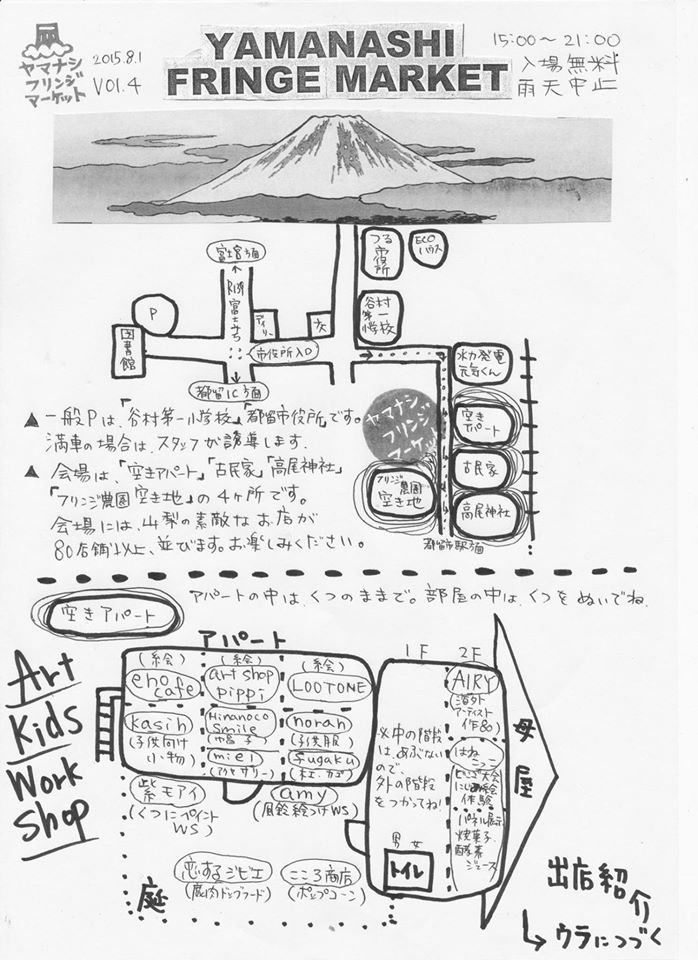 ヤマナシ
フリンジ
マーケット
2015.8.1
VOl.4
YAMANASHI
FRINGE MARKET
15:00〜21:00
入場無料
雨天中止
つる
市役所
ECO
ハウス
富士宮方面
R139
富士みち
谷村
第一
小学校
P
図書館
デイリー
市役所入口
都留IC方面
水力発電
元気くん
空き
アパート
古民家
高尾神社
ヤマナシ
フリンジ
マーケット
フリンジ農園
空き地
都留市駅方面
▲一般Pは、「谷村第一小学校」「都留市役所」です。
満車の場合は、スタッフが誘導します。
▲会場は、「空きアパート」「古民家」「高尾神社」
「フリンジ農園 空き地」の4ヶ所です。
会場には、山梨の素敵なお店が
80店舗以上、並びます。お楽しみください。
空きアパート
アパートの中は、くつのままで。部屋の中は、くつをぬいでね。
Art
Kids
Work
shop
アパート
(絵)
eno
cafe
(絵)
art shop
pippi
(絵)
LOOTONE
kasih
(子供向け
小物)
Hinanoco
smile
(帽子)
norah
(子供服)
miel
(アクセサリー)
fugaku
紫モアイ
(くつにペイント
WS)
amy
(風鈴絵つけWS)
恋するジビエ
(鹿肉ドッグフード)
こころ商店
(ポップコーン)
庭
1F
2F
※中の階段
は、あぶない
ので、
外の階段
をつかってね!
男 女
トイレ
AIRY
海外
アーティスト
作品
はね
こっこ
体験
パネル展示
焼菓子
酵素
ジュース
母屋
出店紹介
ウラにつづく